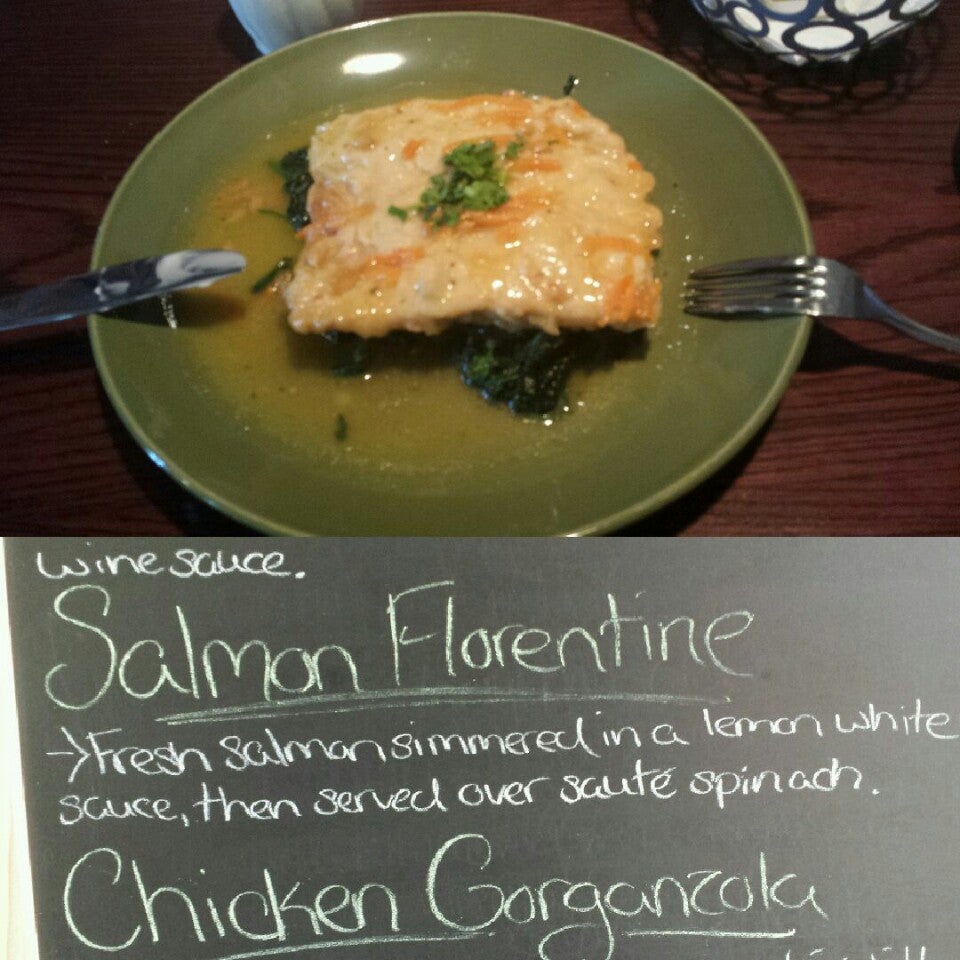 wine sauce.
Salmon Florentine
→Fresh salmon simmered in a lemon white
sauce, then served over sauté spinach.
Chicken Gorganzola